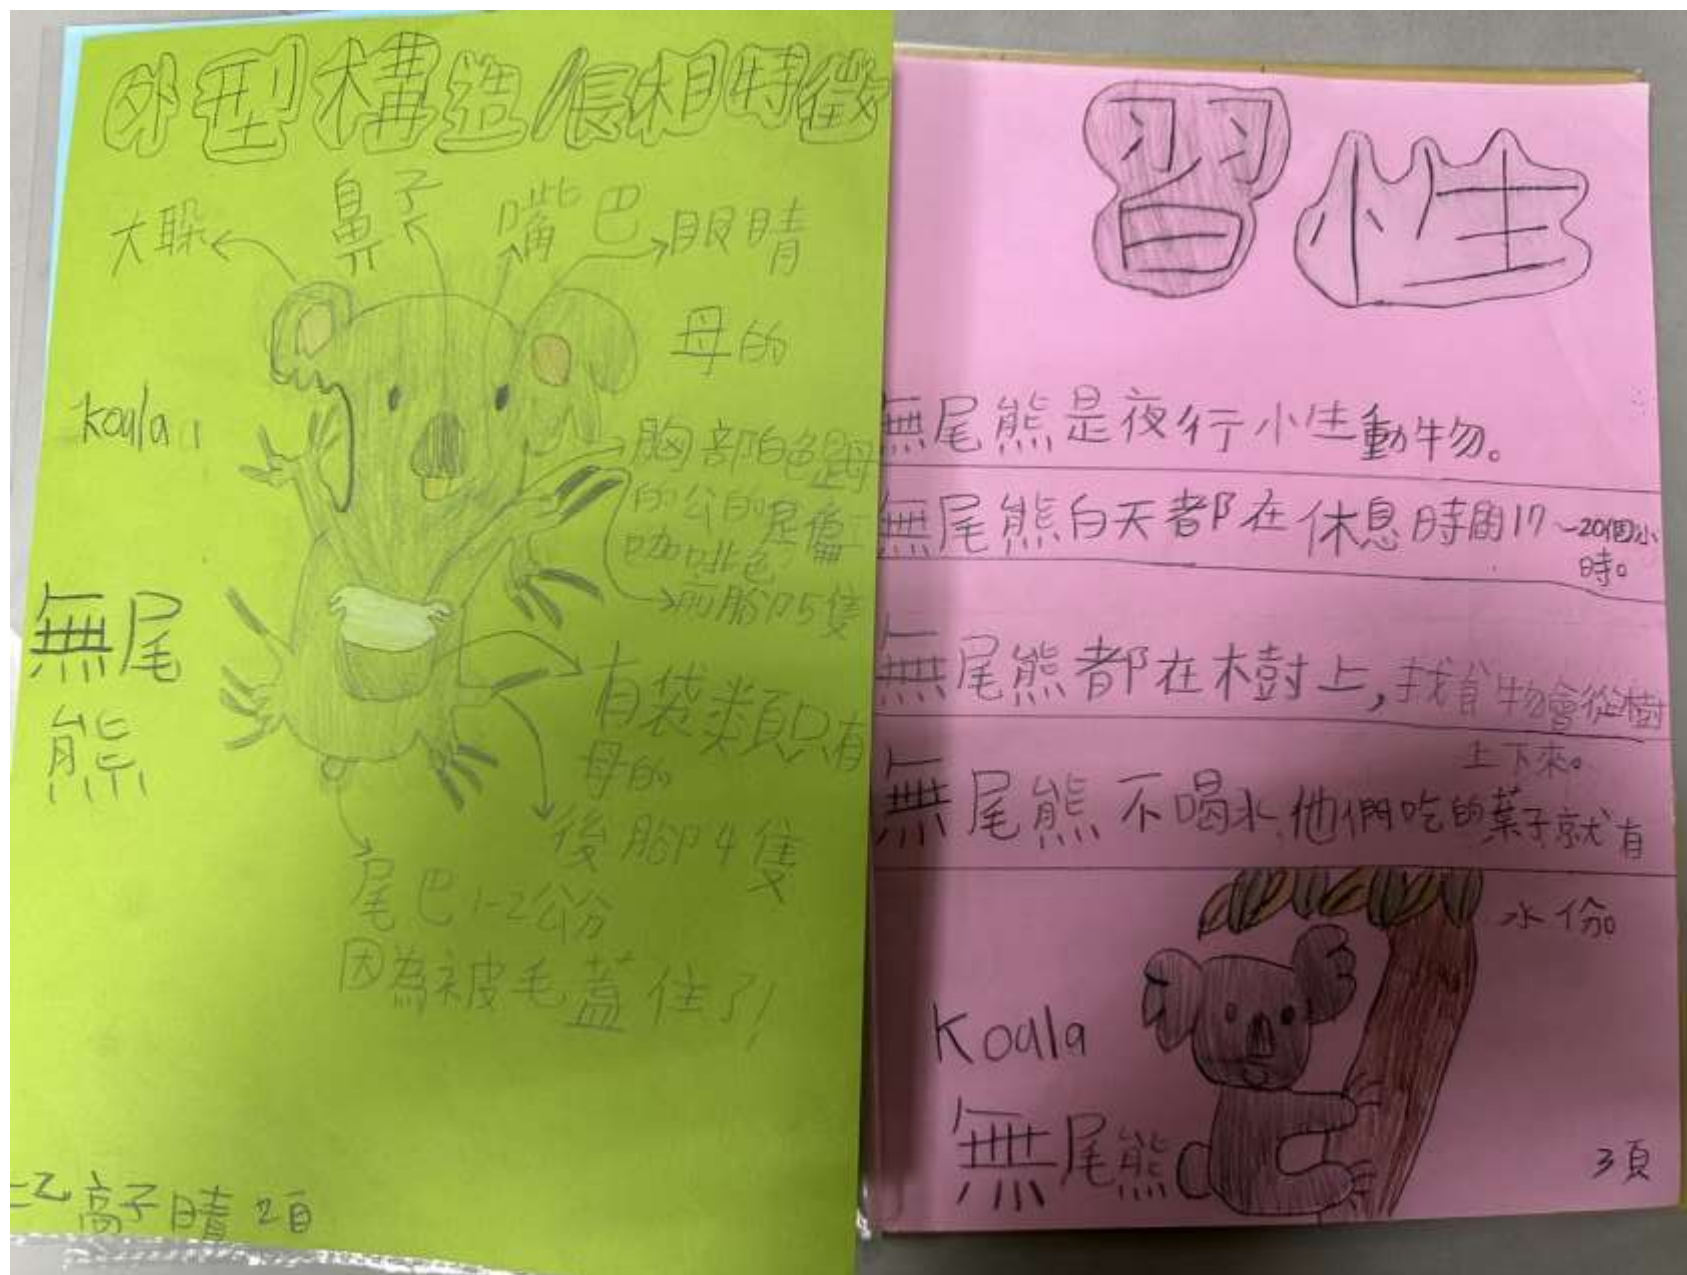 外型構造長相特徵
鼻子
嘴巴
大躲
眼睛
母的
koala
胸部白色是母
的公的是偏
咖啡色
前腳5隻
無尾
熊
有袋類只有
母的
後腳4隻
尾巴1-2公分
因為被毛蓋住了!
高子晴 2頁
習性
無尾熊是夜行性動物。
無尾熊白天都在休息時間17~20個小
時。
無尾熊都在木樹上,找食物會從樹
上下來。
無尾熊不喝水,他們吃的葉子就有
水份。
Koala
無尾熊
3頁